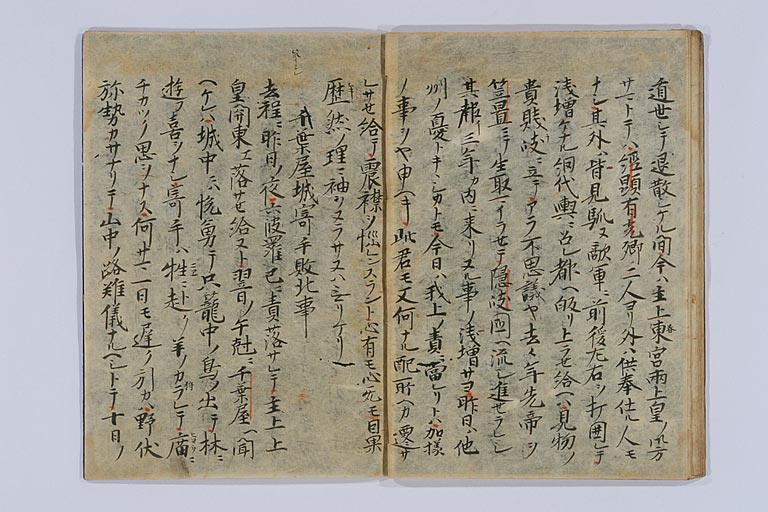 遁世シテ退散シケル間今ハ主上東宮兩上皇ノ御方
サマトテハ經顕有光卿二人ヨリ外ハ供奉仕ル人モ
ナシ其外ハ皆見馴ヌ敵軍ニ前後左右ヲ打囲レテ
浅増ケナル網代輿ニ召レ都ヘ皈リ上ラセ給ヘハ見物ノ
貴賤岐ニ立テアラ不思議ヤ去々年先帝ヲ
笠置ニテ生取マイラセテ隠岐國ヘ流シ進セラレシ
其報三年カ内ニ来リヌル事ノ浅増サヨ昨日ハ他
州ノ憂トキヽシカトモ今日ハ我上ノ責ニ當レリトハ加様
ノ事ヲヤ申ヘキ此君モ又何ナル配所ヘカ遷サ
レサセ給テ震襟ヲ悩レスラント心有モ心无モ目果
歴然ノ理ニ袖ヲヌラサヌハ无リケリ
千葉屋城寄手敗北事
去程ニ昨日ノ夜六波羅已ニ責落サレテ主上上
皇関東エ落サセ給ヌト翌日ノ午尅ニ千葉屋ヘ聞
ヘケレハ城中ニハ悦勇テ只籠中ノ鳥ノ出テ林ニ
遊フ喜ヲナシ寄手ハ牲ニ赴ク羊ノカラレテ廟ニ
チカツク思ヲナス何サマ一日モ遅ク引カハ野伏
弥勢カサナリテ山中ノ路難儀ナルヘシトテ十日ノ